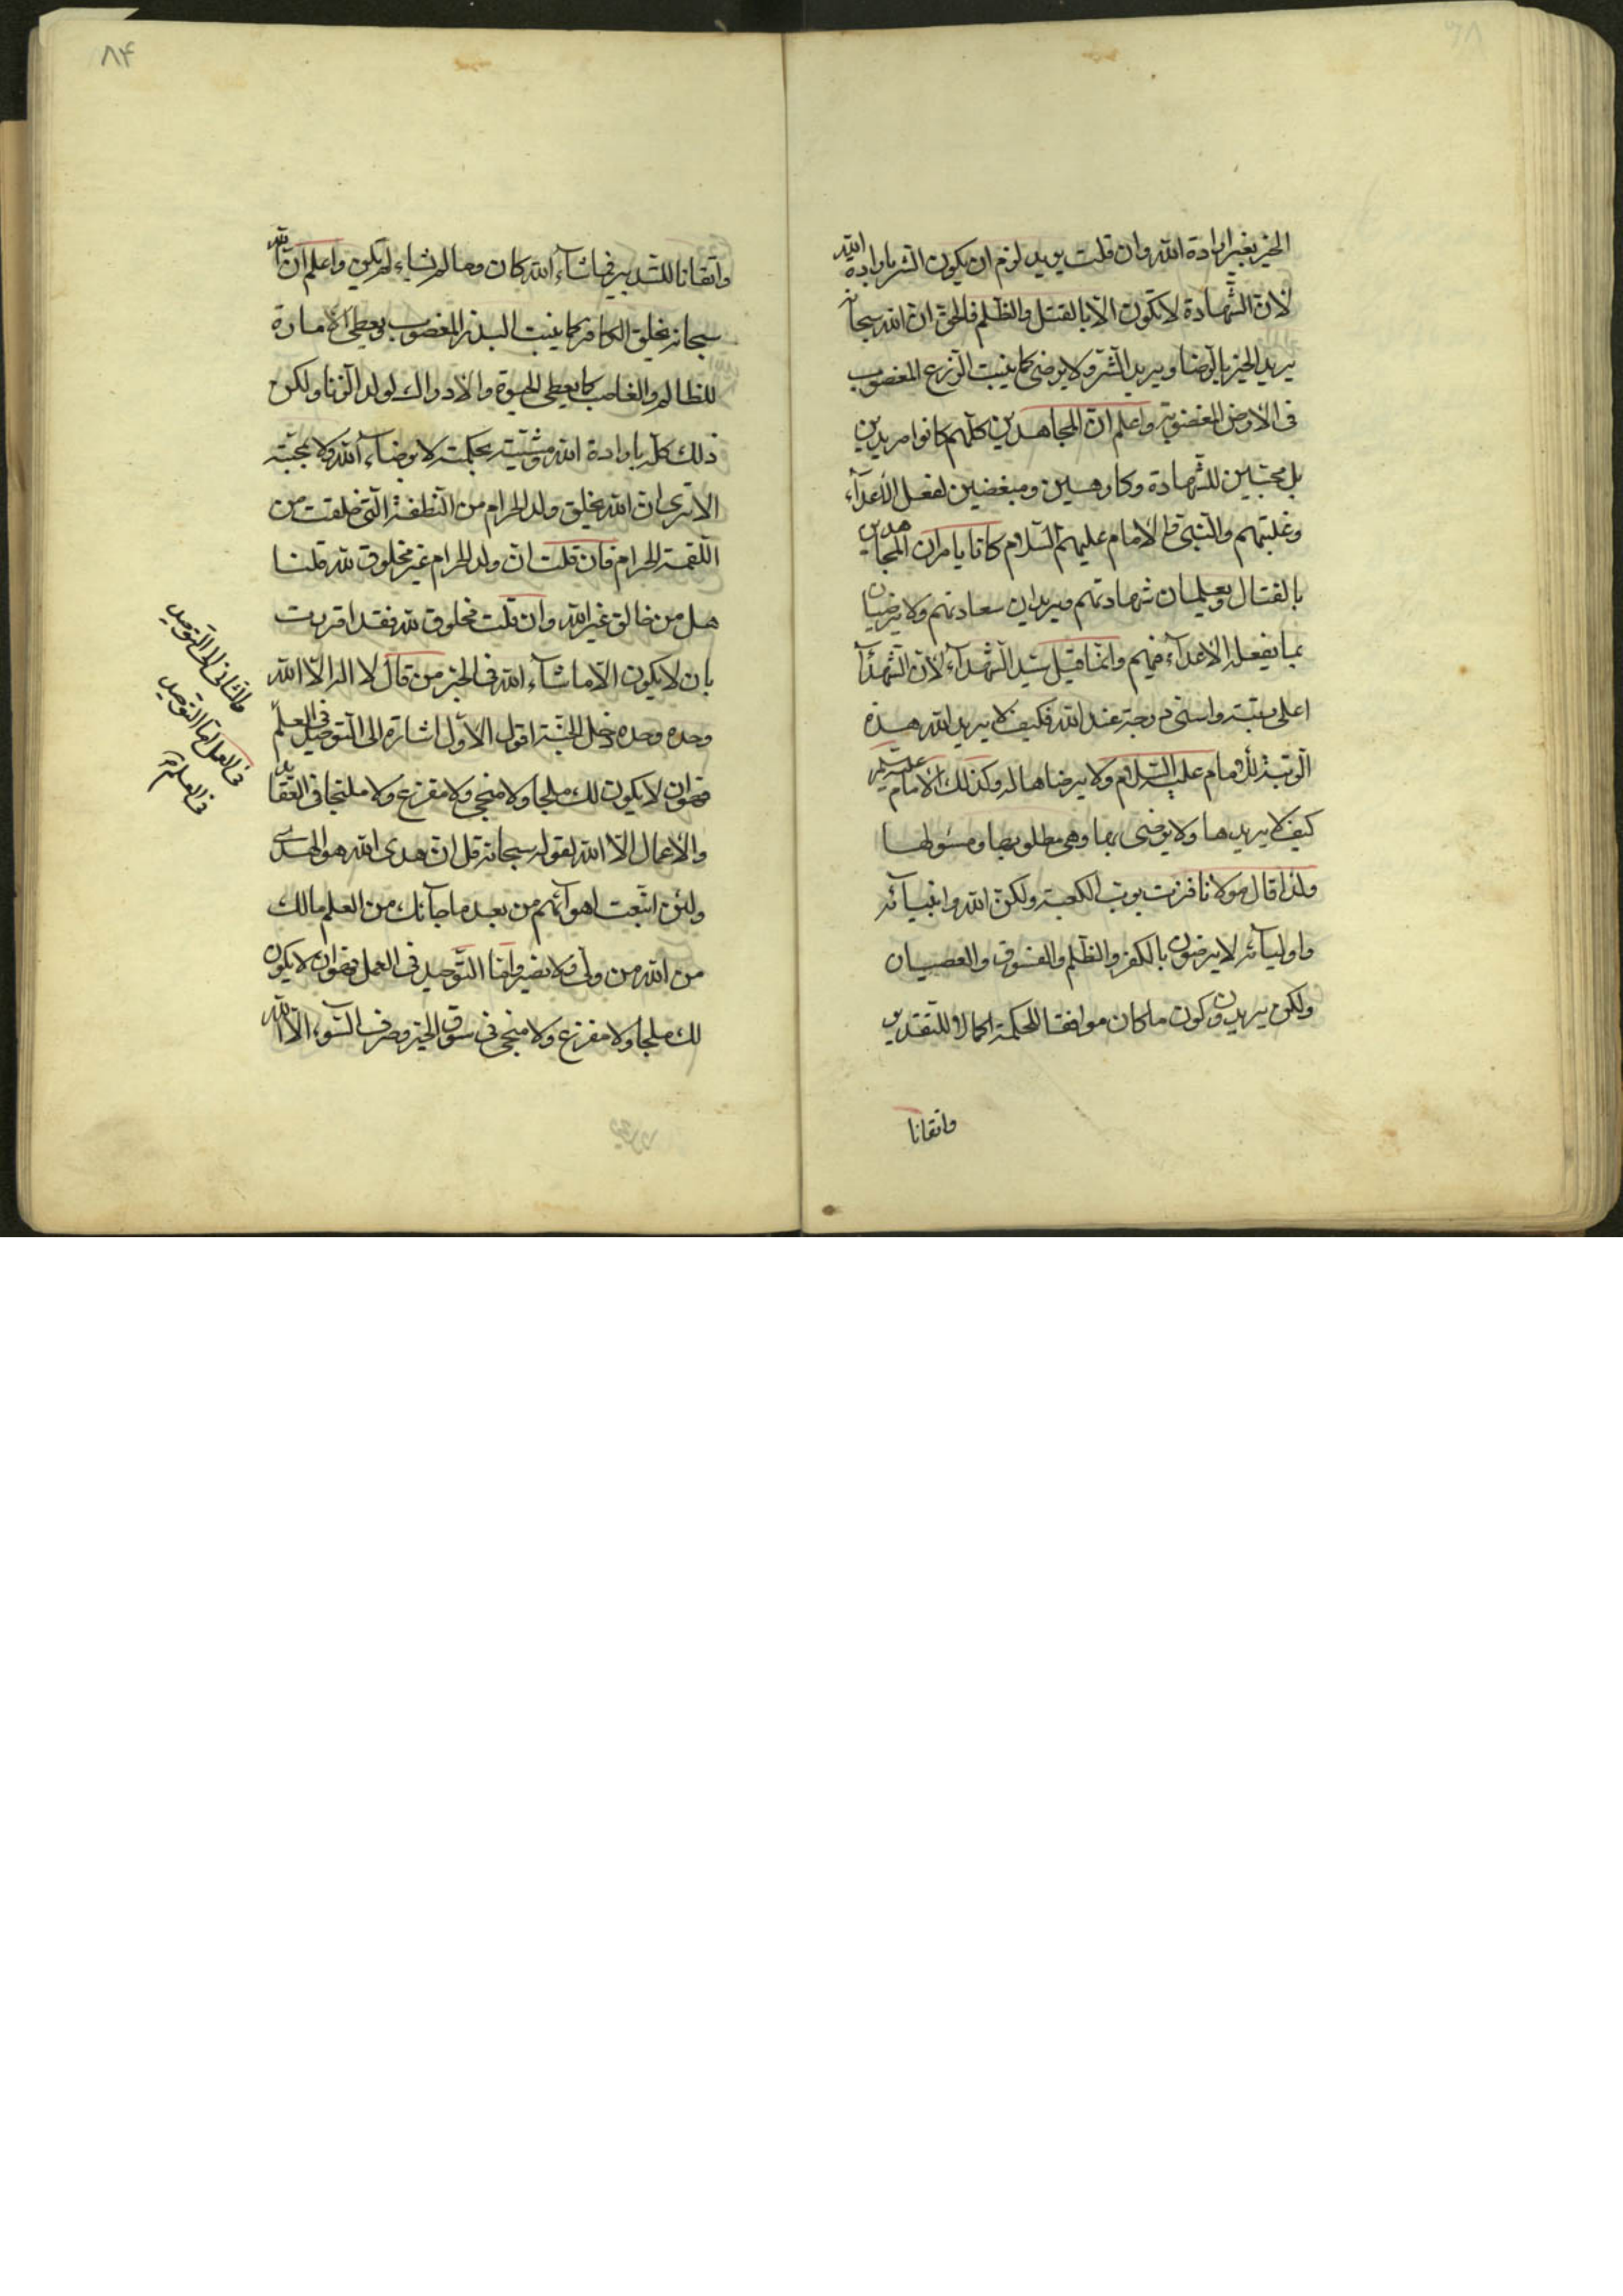 الخير بغير ارادة الله وان قلت يريد لزم ان يكون الشر بارادة الله
لان الشهادة لا تكون الا بالقتل والظلم فالحق ان الله سبحانه
يريد الخير بالرضا ويريد الشر ولا يرضى كما ينبت الزرع المغصوب
فى الارض المغصوبة واعلم ان المجاهدين كلهم كانوا مريدين
بل محبين للشهادة وكارهين ومبغضين لفعل الاعدآء
وغلبتهم والنبى والامام عليهم السلام كانا يامران المجاهدين
بالقتال ويعلمان شهادتهم ويريدان سعادتهم ولا يرضيان
بما يفعله الاعدآء فيهم وانما قيل سيد الشهدآء لان الشهدآء
اعلى رتبة واسنى درجة عند الله فكيف لا يريد الله هذه
الرتبة للامام عليه السلام ولا يرضاها له وكذلك الامام عليه السلام
كيف لا يريدها ولا يرضى بها وهى مطلوبها ومسئولها
ولذا قال مولانا فزت برب الكعبة ولكن الله وانبيآئه
واوليآئه لا يرضون بالكفر والظلم والفسوق والعصيان
ولكن يريدون كون ما كان موافقا للحكمة اكمالا للتقدير
واتقانا
۸۴
واتقانا للتدبير فما شآء الله كان وما لم يشاء لم يكن واعلم ان الله
سبحانه يخلق الكافر كما ينبت البذر المغصوب ويعطى الامارة
للظالم والغاصب كما يعطى الحيوة والادراك لولد الزنا ولكن
ذلك كله بارادة الله ومشيته بحكمته لا برضآء الله ولا بمحبته
الا ترى ان الله يخلق ولد الحرام من النطفة التى خلقت من
اللقمة الحرام فان قلت ان ولد الحرام غير مخلوق لله قلنا
هل من خالق غير الله وان قلت مخلوق لله فقد اقررت
بان لا يكون الا ما شآء الله فى الخبر من قال لا اله الا الله
وحده وحده دخل الجنة اقول الاول اشارة الى التوحيد فى العلم
فهو ان لا يكون لك ملجا ولا منجى ولا مفزع ولا ملتجا فى العقايد
والاعمال الا الله لقوله سبحانه قل ان هدى الله هو الهدى
ولئن اتبعت اهوآئهم من بعد ما جآئك من العلم ما لك
من الله من ولى ولا نصير واما التوحيد فى العمل فهو ان لا يكون
لك ملجا ولا مفزع ولا منجى فى سوق الخير وصرف السوء الا الله
والثانى الى التوحيد
فى العمل اما التوحيد
فى العلم